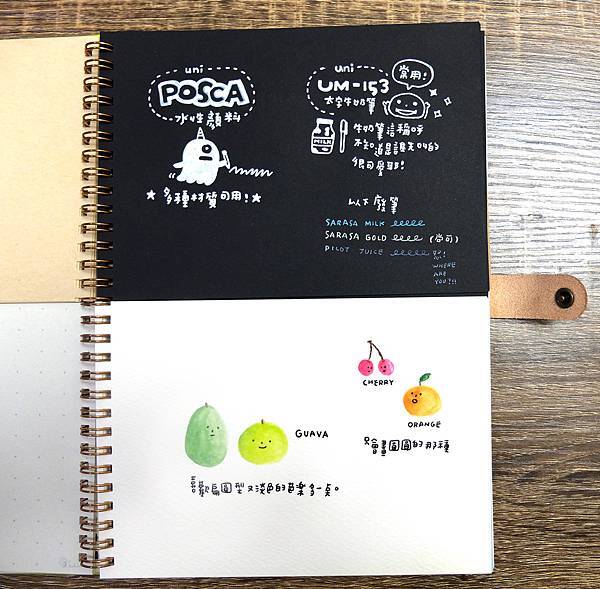 uni
POSCA
水性顏料
★ 多種材質可用！★
uni
UM-153
太字牛奶筆
常用！
MILK
牛奶筆這稱呼
不知道是誰先叫的
很可愛耶！
以下廢筆
SARASA MILK
SARASA GOLD (尚可)
PILOT JUICE
WHERE
ARE
YOU?!!
CHERRY
ORANGE
只會畫圓圓的那種
GUAVA
扁圓型又淡色的芭樂多一點。